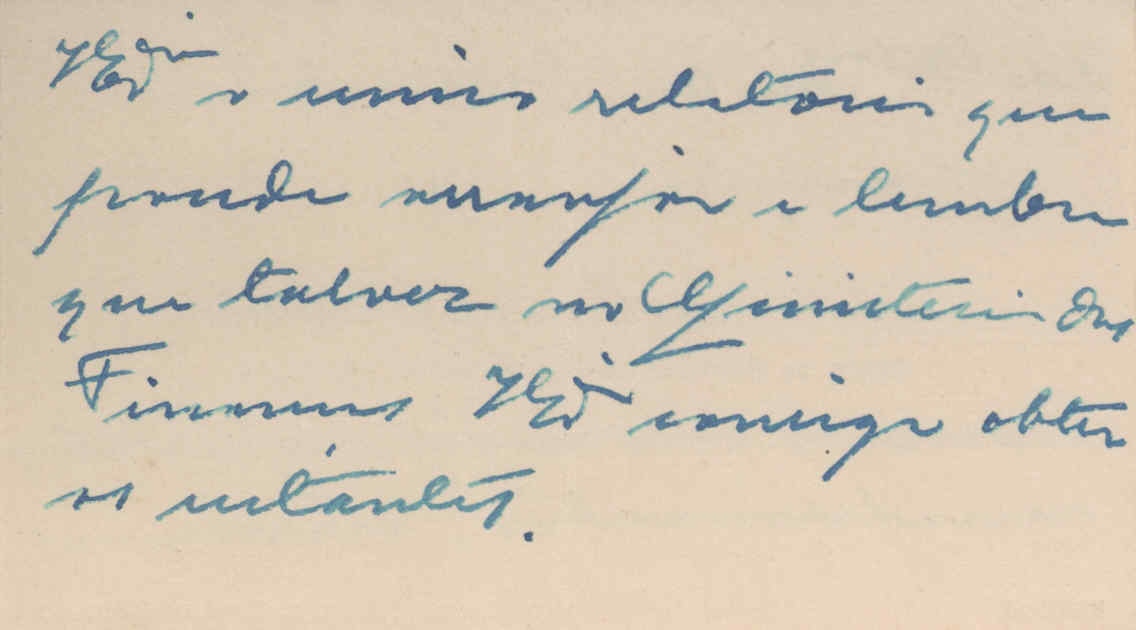 V Exª o unico relatorio que
poude arranjar e lembra
que talvez no Ministerio das
Finanças V Exª consiga obter
os restantes.